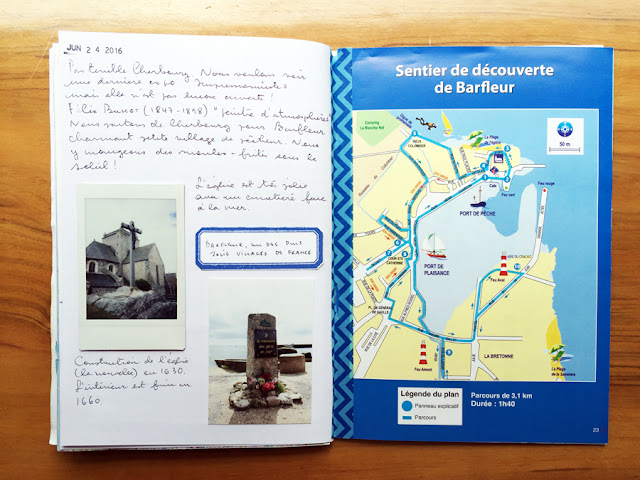 JUN 24 2016
Pas terrible Cherbourg. Nous voulons voir
une dernière expo Impressionniste
mais elle n'est pas encore ouverte!
Félix Buhot (1847-1898) "peintre d'atmosphères"
Nous partons de Cherbourg pour Barfleur
charmant petit village de pêcheur. Nous
y mangeons des moules-frites sous le
soleil!
L'église est très jolie
avec un cimetière face
à la mer.
BARFLEUR, UN DES PLUS
JOLIS VILLAGES DE FRANCE
Construction de l'église
(la nouvelle) en 1630.
L'intérieur est fini en
1660.
Sentier de découverte
de Barfleur
Camping
La Blanche Nef
La Plage
50 m
Feu rouge
Cale
Feu vert
PORT DE PÊCHE
PORT DE
PLAISANCE
COUR STE
CATHERINE
PL. DU GÉNÉRAL
DE GAULLE
Feu Aval
Feu Amont
LA BRETONNE
La Plage
de la Sambière
Légende du plan
Panneau explicatif
Parcours
Parcours de 3,1 km
Durée : 1h40
23